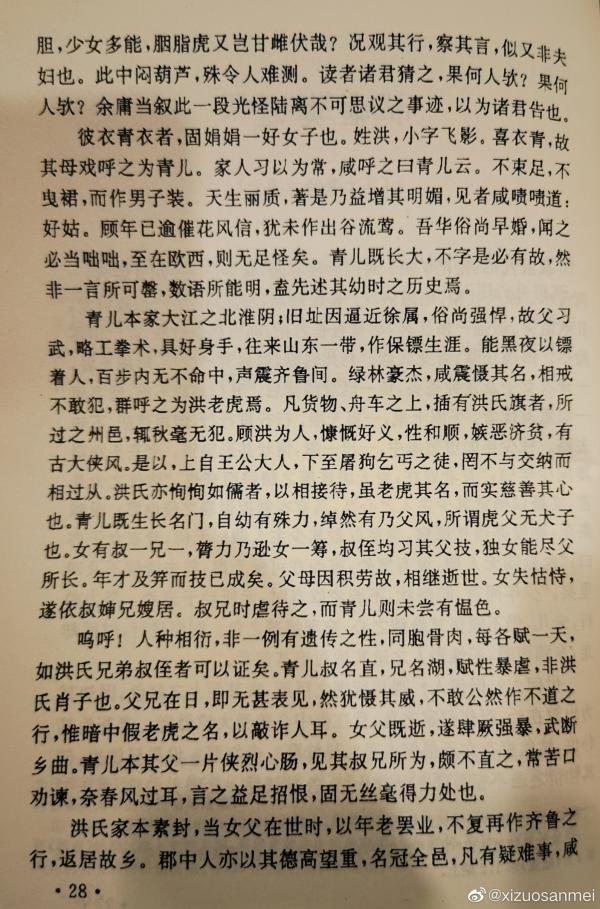 胆，少女多能，胭脂虎又岂甘雌伏哉？况观其行，察其言，似又非夫
妇也。此中闷葫芦，殊令人难测。读者诸君猜之，果何人欤？果何
人欤？余庸当叙此一段光怪陆离不可思议之事迹，以为诸君告也。
彼衣青衣者，固娟娟一好女子也。姓洪，小字飞影。喜衣青，故
其母戏呼之为青儿。家人习以为常，咸呼之曰青儿云。不束足，不
曳裙，而作男子装。天生丽质，著是乃益增其明媚，见者咸啧啧道：
好姑。顾年已逾催花风信，犹未作出谷流莺。吾华俗尚早婚，闻之
必当咄咄，至在欧西，则无足怪矣。青儿既长大，不字是必有故，然
非一言所可罄，数语所能明，盍先述其幼时之历史焉。
青儿本家大江之北淮阴；旧址因逼近徐属，俗尚强悍，故父习
武，略工拳术，具好身手，往来山东一带，作保镖生涯。能黑夜以镖
着人，百步内无不命中，声震齐鲁间。绿林豪杰，咸震慑其名，相戒
不敢犯，群呼之为洪老虎焉。凡货物、舟车之上，插有洪氏旗者，所
过之州邑，辄秋毫无犯。顾洪为人，慷慨好义，性和顺，嫉恶济贫，有
古大侠风。是以，上自王公大人，下至屠狗乞丐之徒，罔不与交纳而
相过从。洪氏亦恂恂如儒者，以相接待，虽老虎其名，而实慈善其心
也。青儿既生长名门，自幼有殊力，绰然有乃父风，所谓虎父无犬子
也。女有叔一兄一，膂力乃逊女一筹，叔侄均习其父技，独女能尽父
所长。年才及笄而技已成矣。父母因积劳故，相继逝世。女失怙恃，
遂依叔婶兄嫂居。叔兄时虐待之，而青儿则未尝有愠色。
呜呼！人种相衍，非一例有遗传之性，同胞骨肉，每各赋一天，
如洪氏兄弟叔侄者可以证矣。青儿叔名直，兄名湖，赋性暴虐，非洪
氏肖子也。父兄在日，即无甚表见，然犹慑其威，不敢公然作不道之
行，惟暗中假老虎之名，以敲诈人耳。女父既逝，遂肆厥强暴，武断
乡曲。青儿本其父一片侠烈心肠，见其叔兄所为，颇不直之，常苦口
劝谏，奈春风过耳，言之益足招恨，固无丝毫得力处也。
洪氏家本素封，当女父在世时，以年老罢业，不复再作齐鲁之
行，返居故乡。郡中人亦以其德高望重，名冠全邑，凡有疑难事，咸
·28·
@xizuosanmei